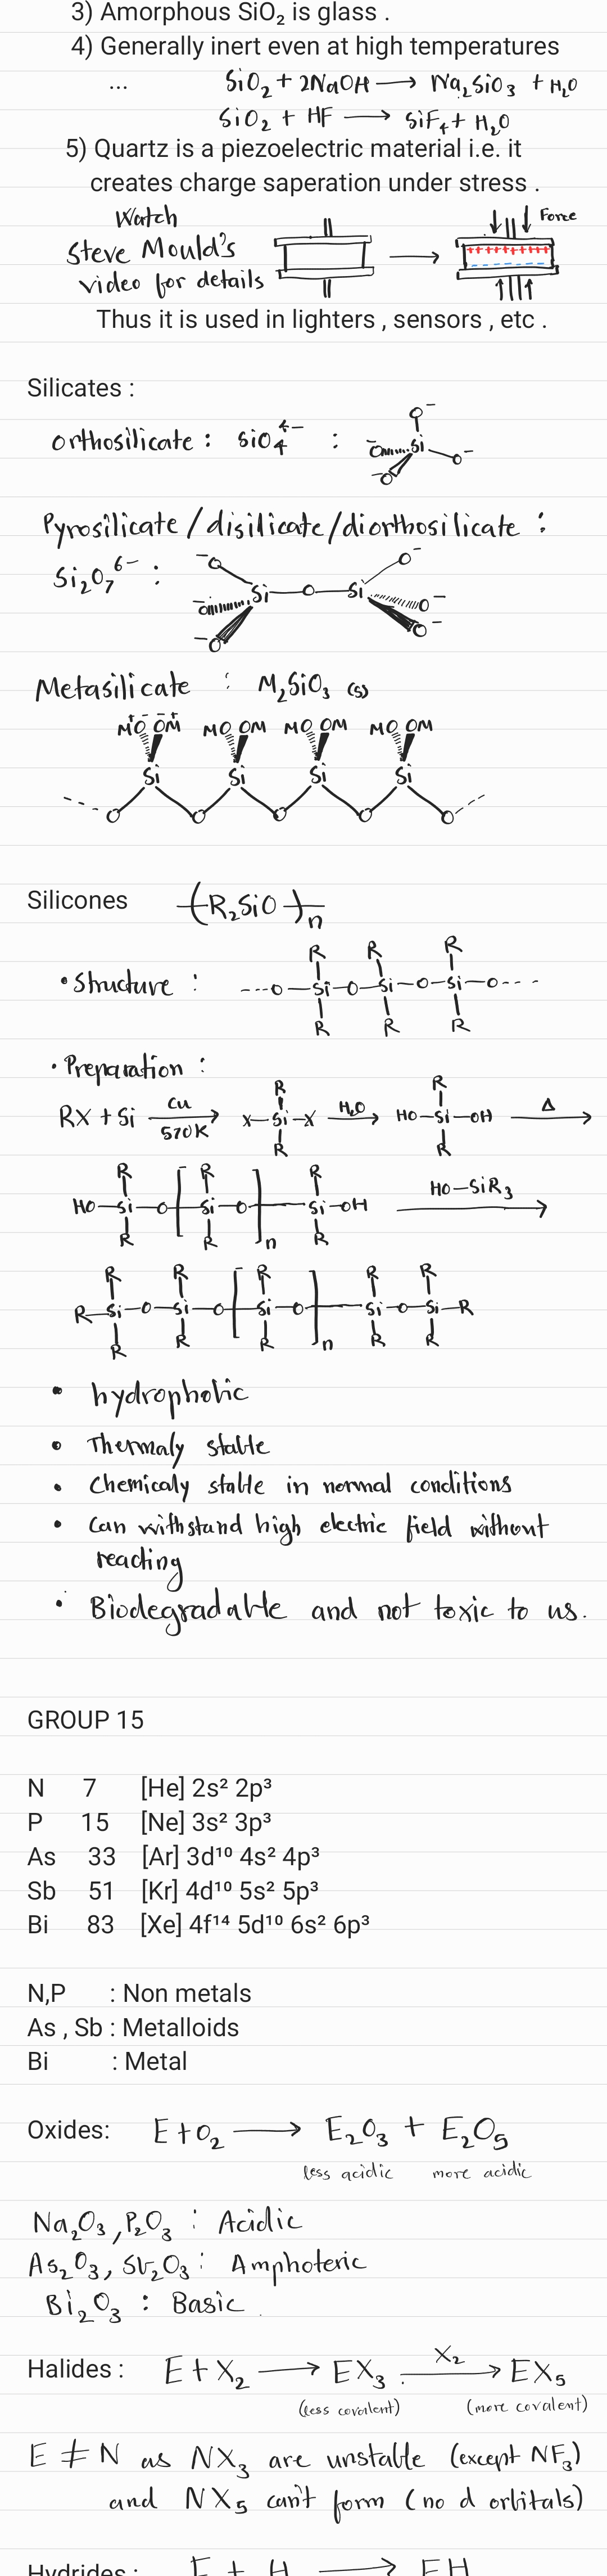 3) Amorphous SiO₂ is glass .
4) Generally inert even at high temperatures
... SiO₂ + 2NaOH ⟶ Na₂SiO₃ + H₂O
SiO₂ + HF ⟶ SiF₄ + H₂O
5) Quartz is a piezoelectric material i.e. it
creates charge saperation under stress .
Watch
Steve Mould's
video for details
Force
+++++++++
Thus it is used in lighters , sensors , etc .
Silicates :
Orthosilicate : SiO₄⁴⁻ :
O⁻
⁻O Si O⁻
⁻O
Pyrosilicate/disilicate/diorthosilicate :
Si₂O₇⁶⁻ :
⁻O O⁻
⁻O Si—O—Si O⁻
⁻O O⁻
Metasilicate : M₂SiO₃ (s)
M⁺O⁻ O⁻M⁺ MO OM MO OM MO OM
Si Si Si Si
O O O O O
Silicones (R₂SiO)n
R R R
• Structure : ---O—Si—O—Si—O—Si—O---
R R R
• Preparation :
RX + Si Cu ⟶ 570K X—Si—X H₂O ⟶ HO—Si—OH Δ ⟶
R R
R R
R R R
HO—Si—O—[Si—O]n—Si—OH HO—SiR₃ ⟶
R R R
R R R R R
R—Si—O—Si—O—[Si—O]n—Si—O—Si—R
R R R R R
• hydrophobic
• Thermaly stable
• Chemicaly stable in normal conditions
• Can withstand high electric field without
reading
• Biodegradable and not toxic to us.
GROUP 15
N 7 [He] 2s² 2p³
P 15 [Ne] 3s² 3p³
As 33 [Ar] 3d¹⁰ 4s² 4p³
Sb 51 [Kr] 4d¹⁰ 5s² 5p³
Bi 83 [Xe] 4f¹⁴ 5d¹⁰ 6s² 6p³
N,P : Non metals
As , Sb : Metalloids
Bi : Metal
Oxides: E + O₂ ⟶ E₂O₃ + E₂O₅
less acidic more acidic
Na₂O₃, P₂O₃ : Acidic
As₂O₃, Sb₂O₃ : Amphoteric
Bi₂O₃ : Basic
Halides : E + X₂ ⟶ EX₃ X₂ ⟶ EX₅
(less covalent) (more covalent)
E ≠ N as NX₃ are unstable (except NF₃)
and NX₅ can't form (no d orbitals)
Hydrides : E + H ⟶ EH